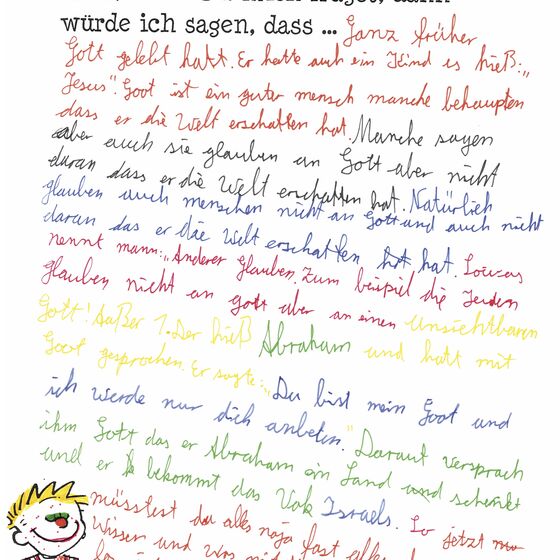 würde ich sagen, dass ... Ganz früher
Gott gelebt hatt. Er hatte auch ein Kind es hieß: „
Jesus". Goot ist ein guter mensch manche behaupten
dass er die Welt erschatten hat. Manche sagen
aber auch sie glauben an Gott aber nicht
daran dass er die Welt erschatten hat. Natürlich
glauben auch menschen nicht an Gott und auch nicht
daran das er die Welt erschatten hat. Sowas
nennt mann: „Anderer Glauben. Zum beispiel die Jeuden
glauben nicht an gott aber an einen unsichtbaren
Gott! Außer 1. Der hieß Abraham und hatt mit
Goot gesprochen. Er sagte: „Du bist mein Goot und
ich werde nur dich anbeten." Darauf versprach
ihm Gott das er Abraham ein Land und schenkt
und er bekommt das Volk Israels. So jetzt
müsstest du alles naja fast alles
Wissen und